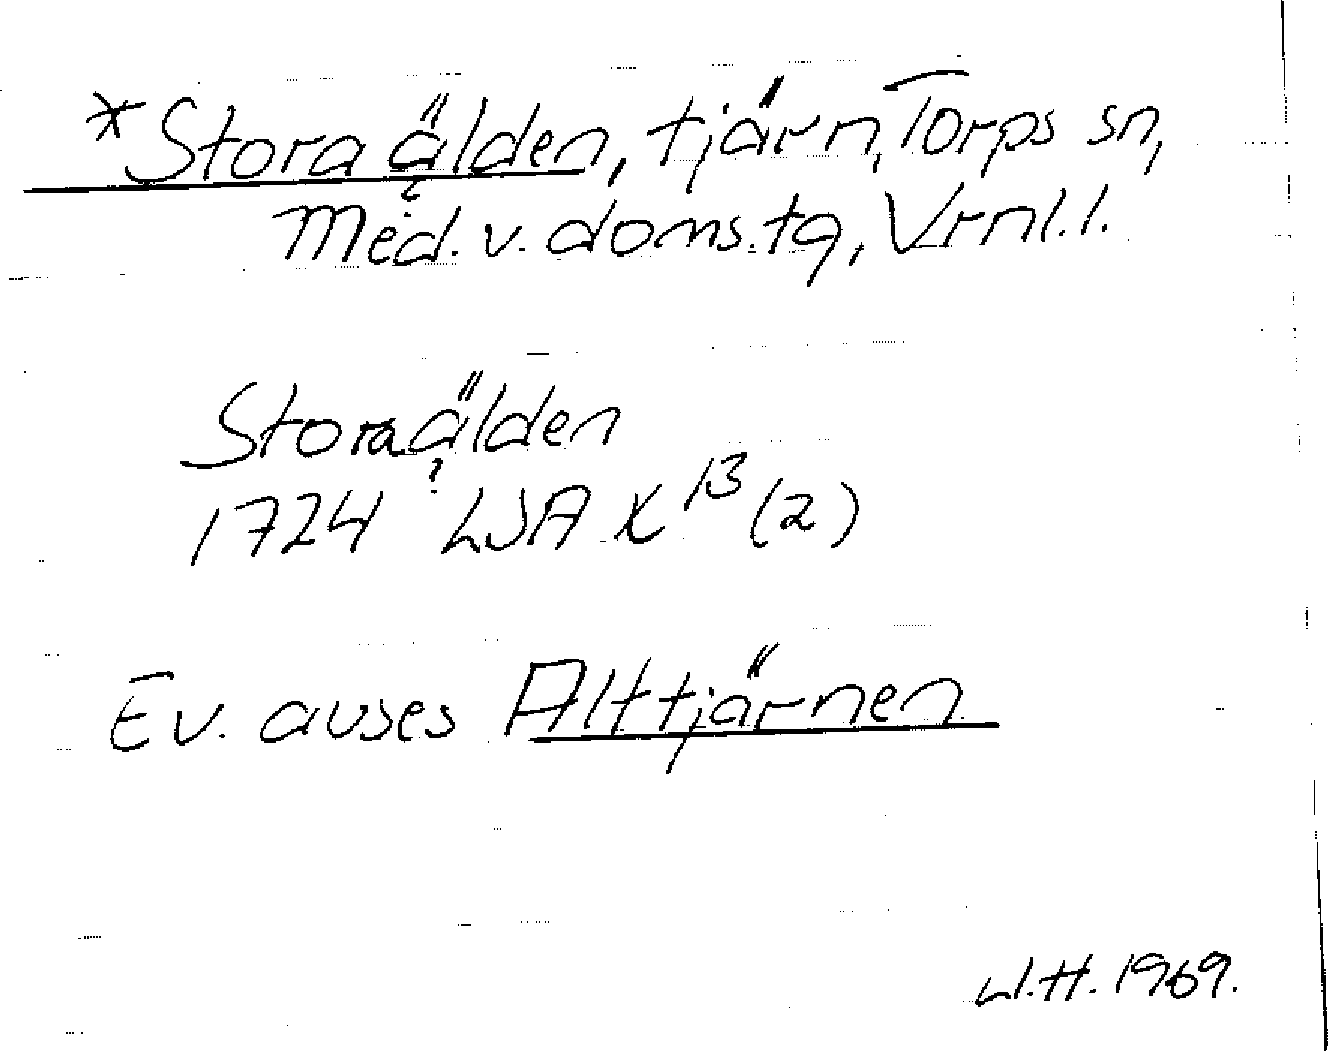 *Stora älden, tjärn, Torps sn,
?
Med. v. doms. tg, Vrnl.l.
Stora älden
?
1724 LSA X 13 (2)
Ev. avses Alttjärnen
W.H. 1969.